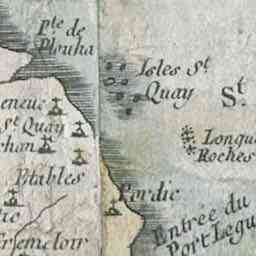 Pte. de
Plouha
Isles St.
Quay
St.
eneuc
St Quay
Longue
Roches
rhan
Ptables
Pordic
Entrée du
Port Legu
Tremeloir